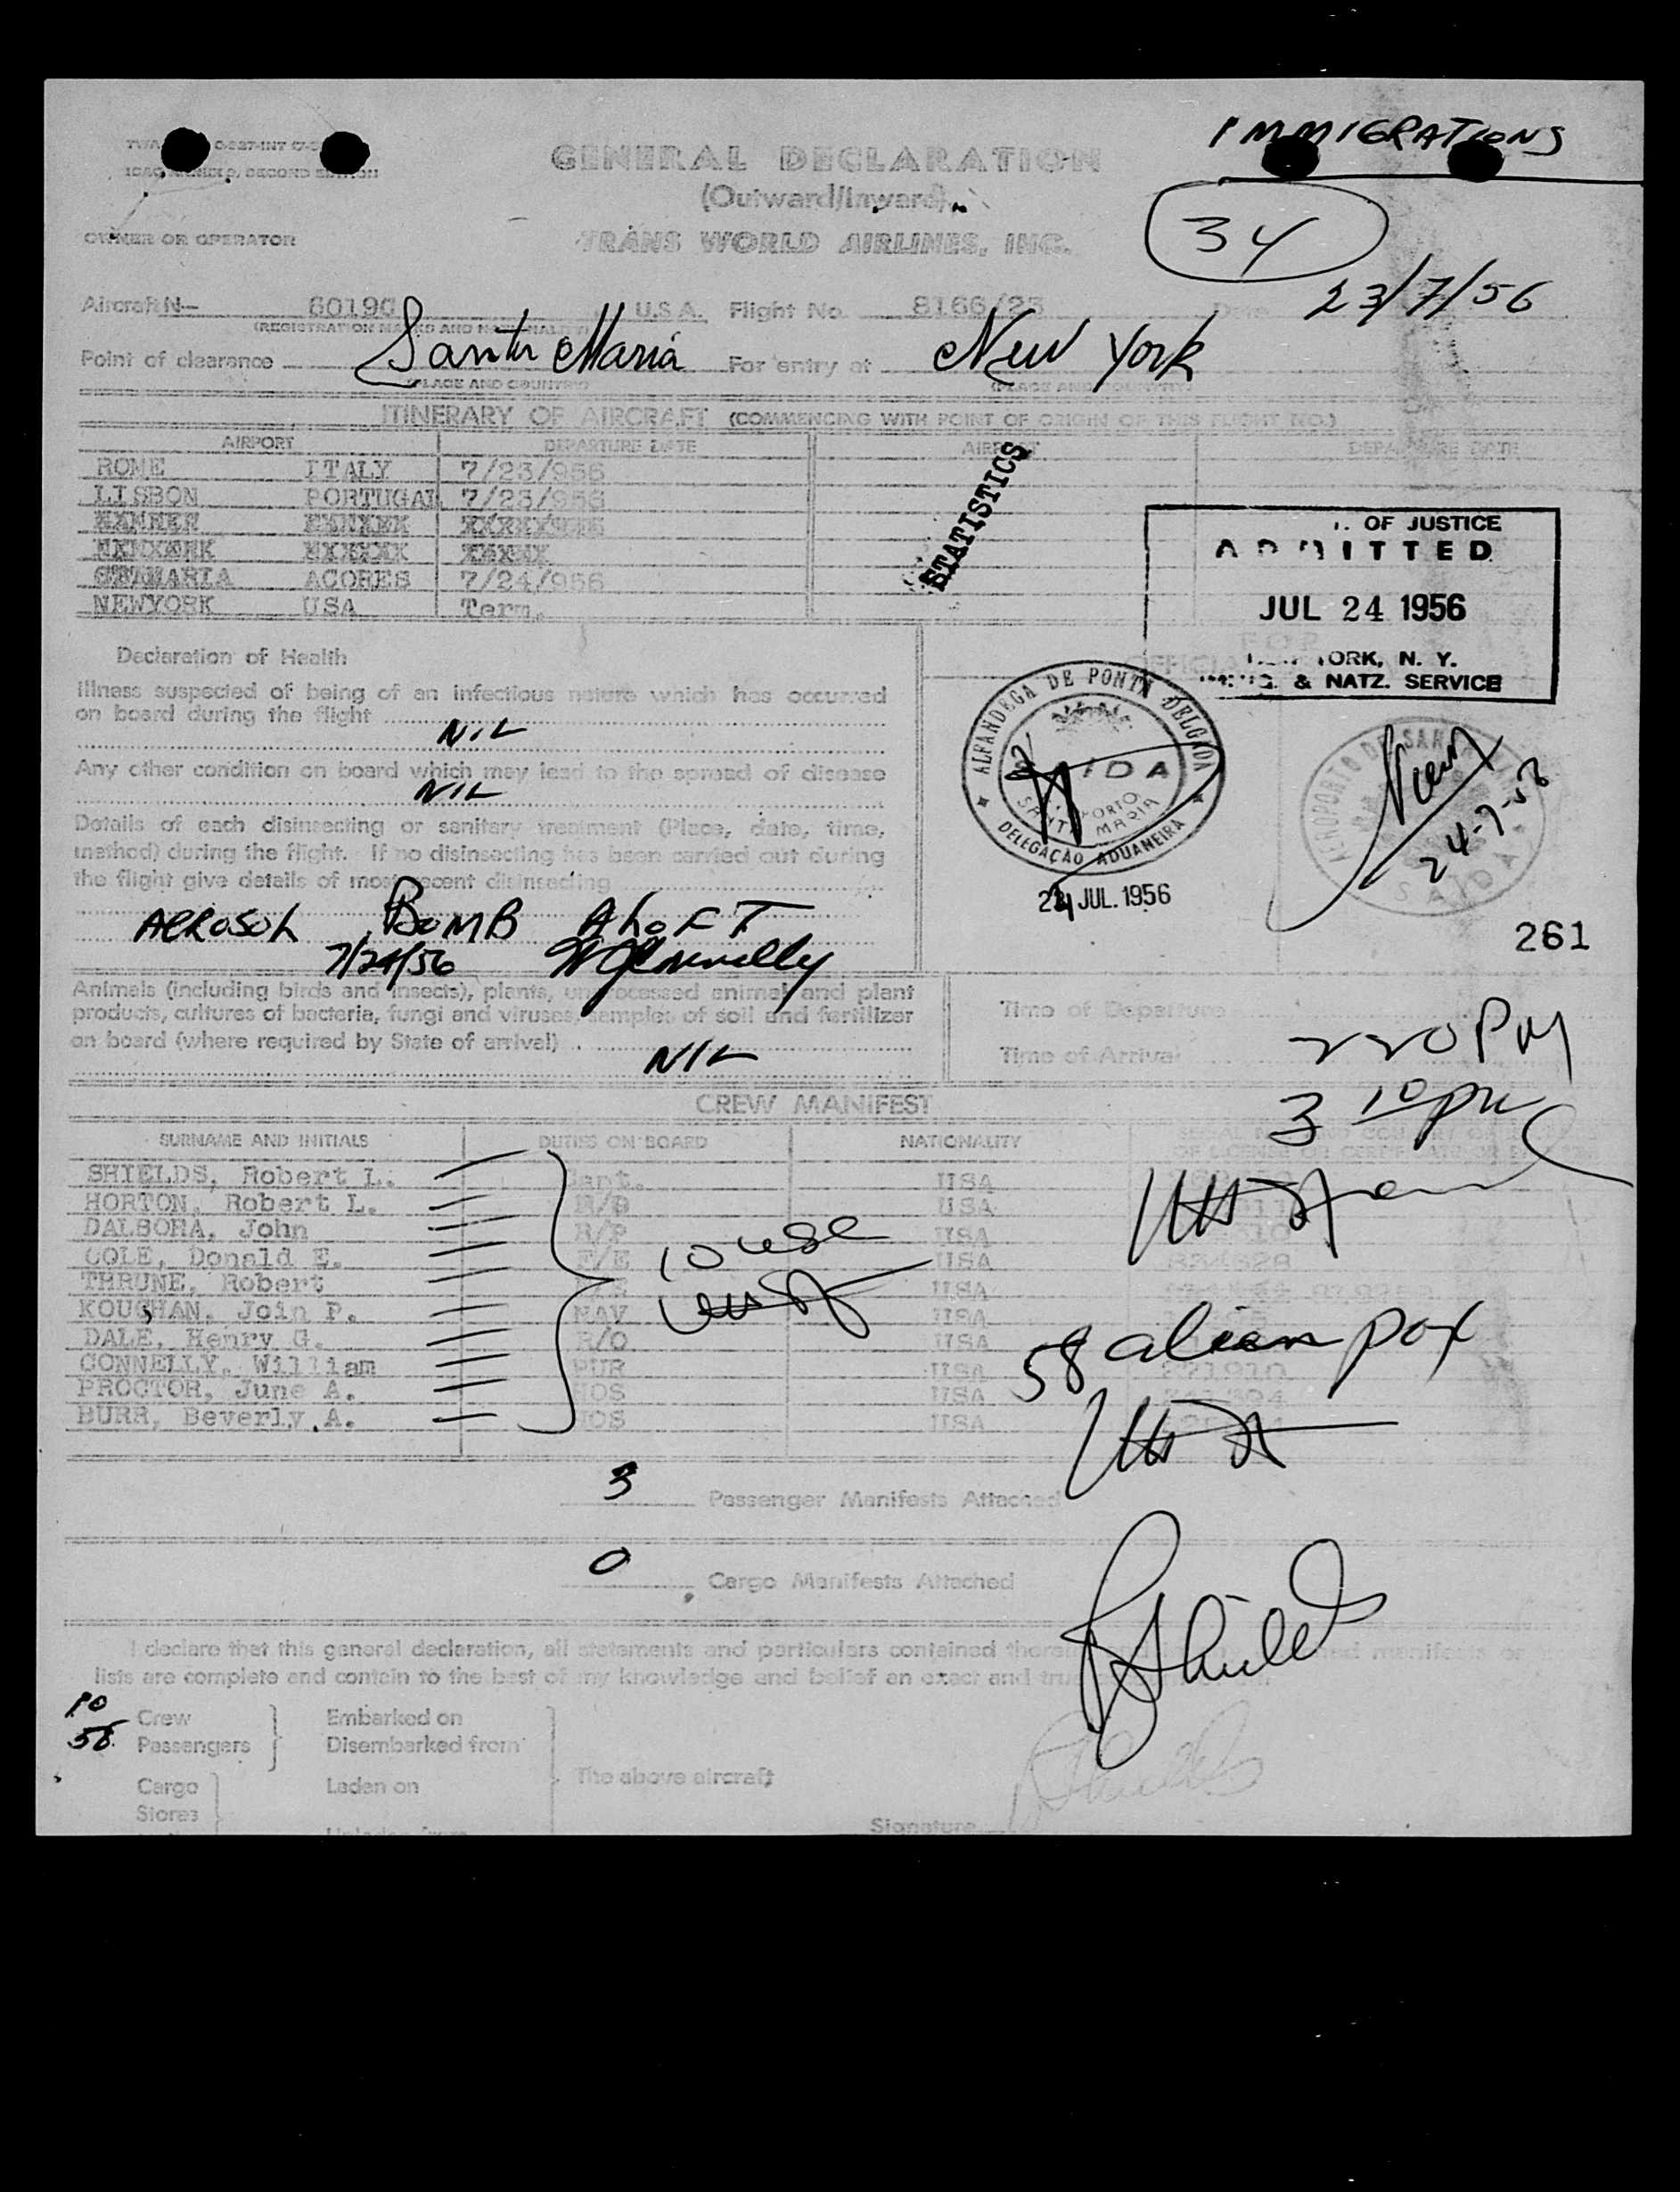 IMMIGRATIONS
GENERAL DECLARATION
(Outward/Inward)
34
OWNER OR OPERATOR
TRANS WORLD AIRLINES, INC.
23/7/56
Aircraft N— 6019C U.S.A. Flight No. 8166/23 Date
(REGISTRATION MARKS AND NATIONALITY)
Point of clearance Santa Maria For entry at New York
(PLACE AND COUNTRY) (PLACE AND COUNTRY)
ITINERARY OF AIRCRAFT (COMMENCING WITH POINT OF ORIGIN OF THIS FLIGHT NO.)
AIRPORT DEPARTURE DATE AIRPORT DEPARTURE DATE
ROME ITALY 7/23/956
LISBON PORTUGAL 7/23/956
STAMARIA ACORES 7/24/956
NEWYORK USA Term.
STATISTICS
. OF JUSTICE
ADMITTED
JUL 24 1956
YORK, N. Y.
& NATZ. SERVICE
Declaration of Health
Illness suspected of being of an infectious nature which has occurred
on board during the flight
NIL
Any other condition on board which may lead to the spread of disease
NIL
Details of each disinsecting or sanitary treatment (Place, date, time,
method) during the flight. If no disinsecting has been carried out during
the flight give details of most recent disinsecting
AEROSOL BOMB ALOFT
7/24/56 W Connelly
ALFANDEGA DE PONTA DELGADA
SAIDA
PORTO
SANTA MARIA
DELEGAÇÃO ADUANEIRA
24 JUL. 1956
AEROPORTO DE SANTA
SAIDA
24-7-56
261
Animals (including birds and insects), plants, unprocessed animal and plant
products, cultures of bacteria, fungi and viruses, samples of soil and fertilizer
on board (where required by State of arrival)
NIL
Time of Departure
Time of Arrival
220 PM
3 10 pm
CREW MANIFEST
SURNAME AND INITIALS DUTIES ON BOARD NATIONALITY
SHIELDS, Robert L. Capt. USA
HORTON, Robert L. USA
DALBORA, John R/P USA
COLE, Donald E. F/E USA
THRUNE, Robert USA
KOUGHAN, Join P. NAV USA
DALE, Henry G. R/O USA
CONNELLY, William PUR USA
PROCTOR, June A. HOS USA
BURR, Beverly A. HOS USA
10 use
58 alien pax
3 Passenger Manifests Attached
0 Cargo Manifests Attached
I declare that this general declaration, all statements and particulars contained
lists are complete and contain to the best of my knowledge and belief an exact and
R Shields
10 Crew Embarked on
58 Passengers Disembarked from
The above aircraft
Cargo Laden on
Stores
Signature